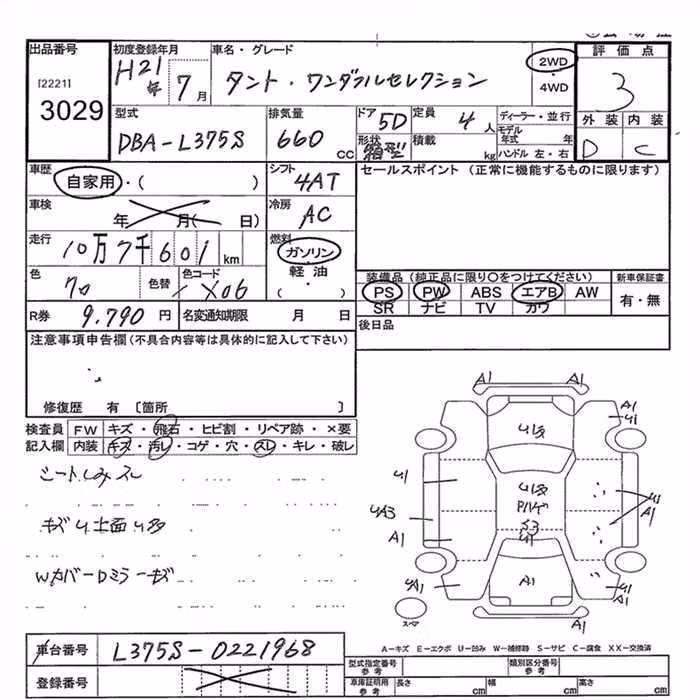 出品番号 初度登録年月 車名・グレード 2WD 評価点
[2221] H21年 7月 タント・ワンダフルセレクション 4WD 3
3029
型式 排気量 ドア 5D 定員 4人 ディーラー・並行 外装 内装
DBA-L375S 660CC 形状 箱型 積載 kg モデル年式 年 D C
ハンドル 左・右
車歴 シフト セールスポイント (正常に機能するものに限ります)
自家用・( ) 4AT
車検 年 月( 日) 冷房 AC
走行 10万7千601km 燃料 ガソリン
軽油
( )
色 色替 色コード X06
装備品 (純正品に限り○をつけてください) 新車保証書
PS PW ABS エアB AW 有・無
SR ナビ TV カワ
R券 9.790円 名変通知期限 月 日 後日品
注意事項申告欄(不具合内容等は具体的に記入して下さい)
修復歴 有 [箇所 ]
検査員 FW キズ・飛石・ヒビ割・リペア跡・×要
記入欄 内装 キズ・汚レ・コゲ・穴・スレ・キレ・破レ
シートしみスレ
キズU上面U多
WカバーDミラーキズ
A1 A1
A1
U1
U多
U1
U多
UA3
A1
S3
U1
U1
A1
A1
A1
スペア
A-キズ E-エクボ U-凹み W-補修跡 S-サビ C-腐食 XX-交換済
車台番号 L375S-0221968
登録番号
型式指定番号 参考 類別区分番号 参考
車庫証明用 参考 長さ cm 幅 cm 高さ cm